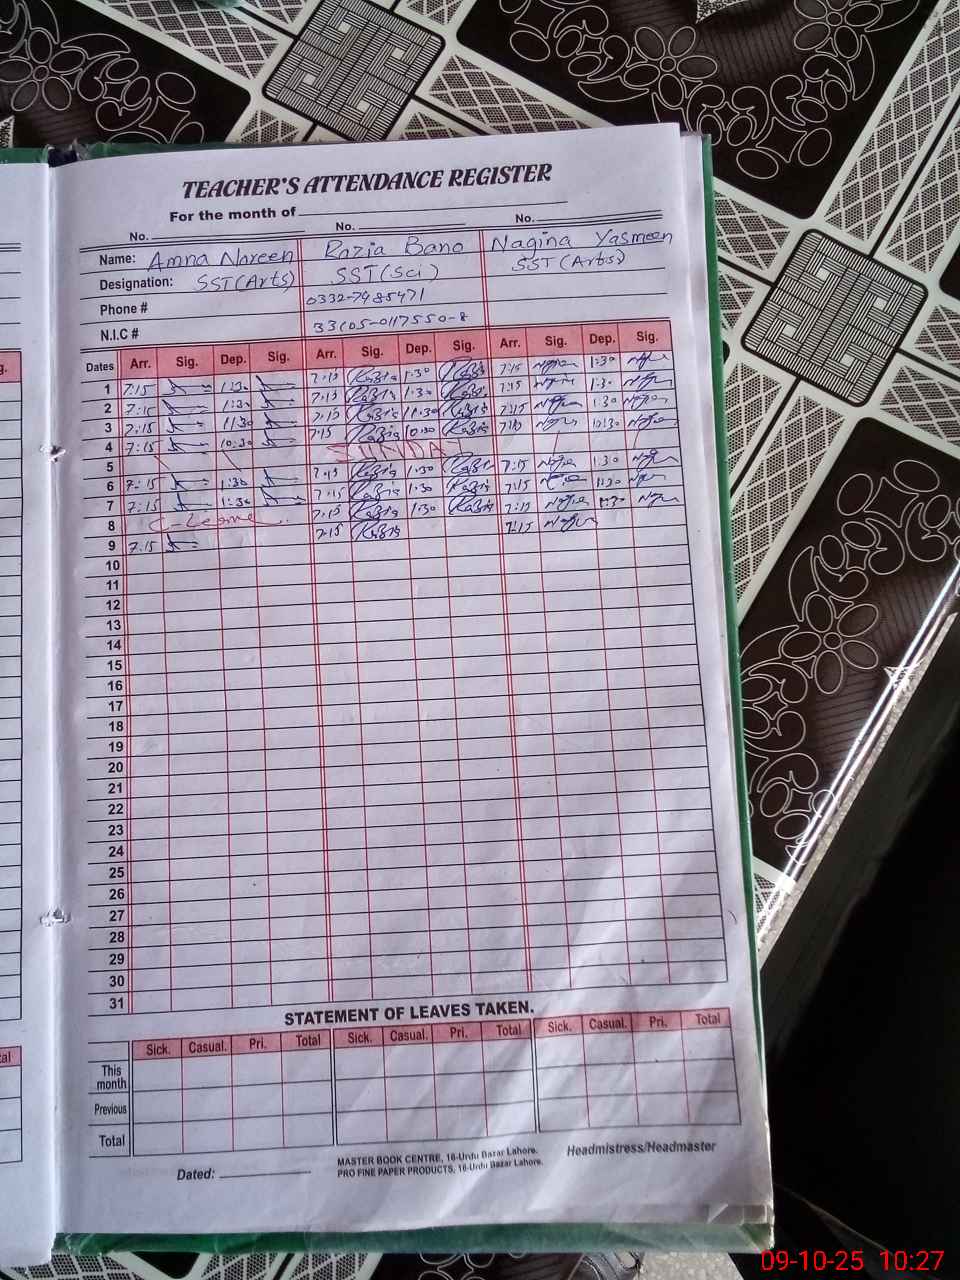 TEACHER'S ATTENDANCE REGISTER
For the month of
No. No. No.
Name: Amna Noreen Razia Bano Nagina Yasmeen
Designation: SST (Arts) SST (Sci) SST (Arts)
Phone # 0332-7985471
N.I.C # 33105-0117550-8
g.
Dates Arr. Sig. Dep. Sig. Arr. Sig. Dep. Sig. Arr. Sig. Dep. Sig.
1 7:15 1:30 7:15 Razia 1:30 Razia 7:15 1:30
2 7:15 1:30 7:15 Razia 1:30 Razia 7:15 1:30
3 7:15 11:30 7:15 Razia 11:30 Razia 7:15 1:30
4 7:15 10:30 7:15 Razia 10:30 Razia 7:15 10:30
5 SUNDAY
6 7:15 1:30 7:15 Razia 1:30 Razia 7:15 1:30
7 7:15 1:30 7:15 Razia 1:30 Razia 7:15 1:30
8 C-Leave 7:15 Razia 1:30 Razia 7:15 1:30
9 7:15 7:15 Razia 7:15
10
11
12
13
14
15
16
17
18
19
20
21
22
23
24
25
26
27
28
29
30
31
STATEMENT OF LEAVES TAKEN.
tal Sick. Casual. Pri. Total Sick. Casual. Pri. Total Sick. Casual. Pri. Total
This
month
Previous
Total
Dated:
MASTER BOOK CENTRE, 16-Urdu Bazar Lahore.
PRO FINE PAPER PRODUCTS, 16-Urdu Bazar Lahore.
Headmistress/Headmaster
09-10-25 10:27